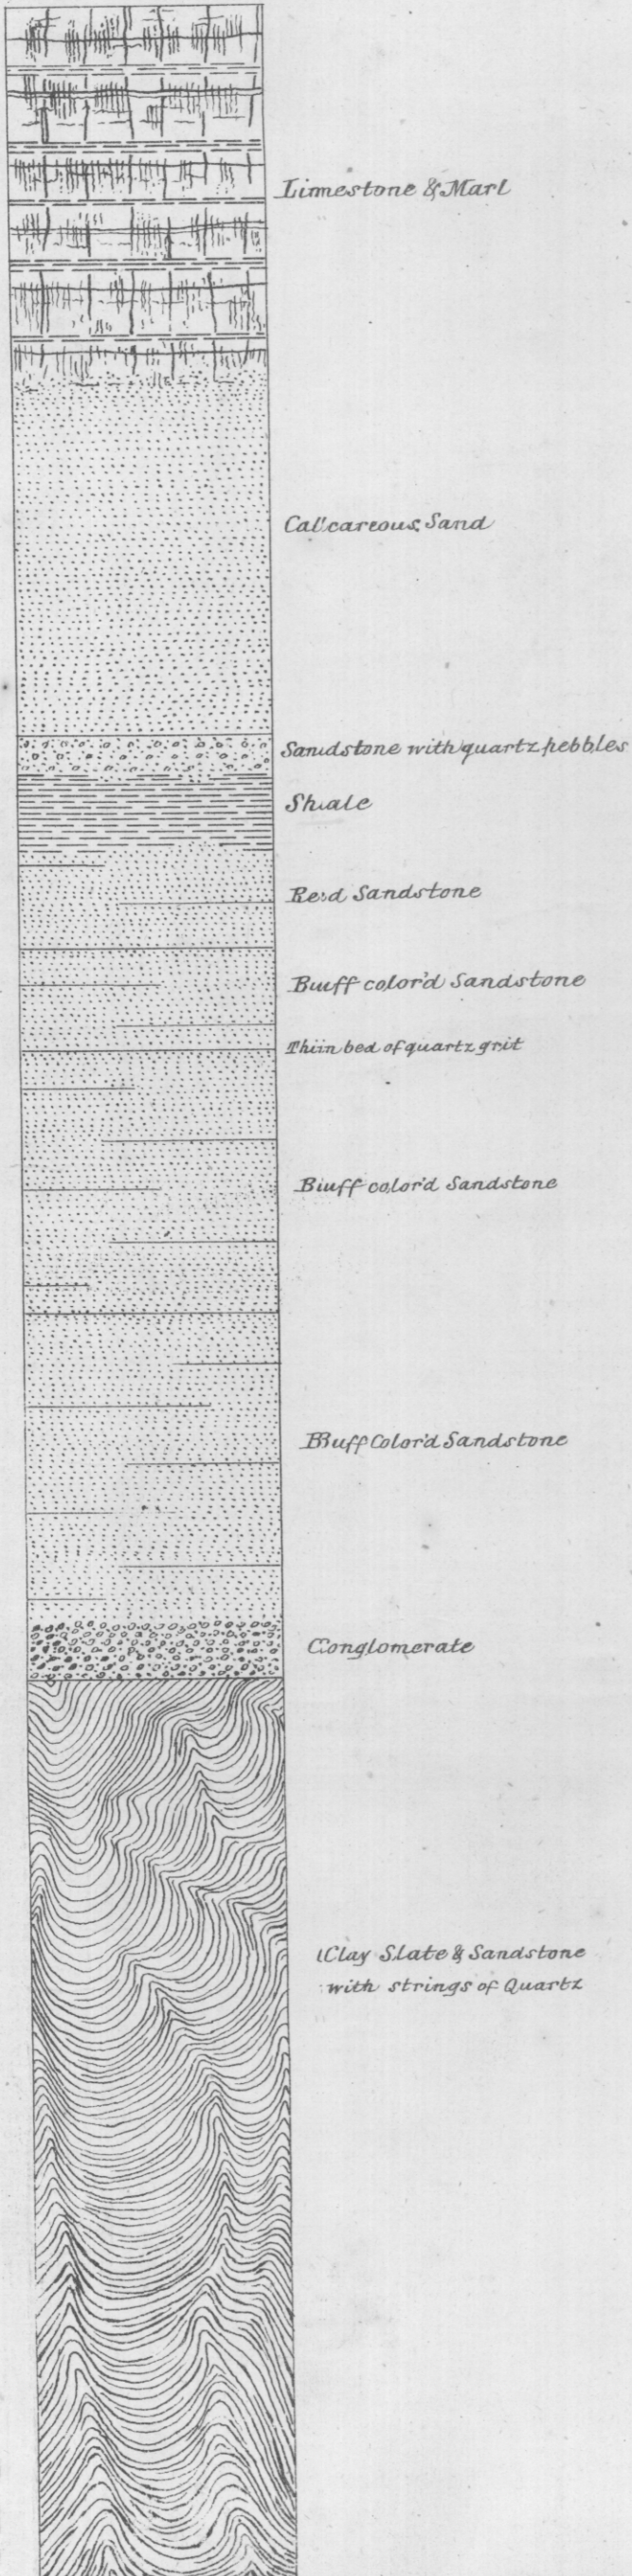 Limestone & Marl
Calcareous Sand
Sandstone with quartz pebbles
Shale
Red Sandstone
Buff color'd Sandstone
Thin bed of quartz grit
Buff color'd Sandstone
Buff Color'd Sandstone
Conglomerate
Clay Slate & Sandstone
with strings of Quartz